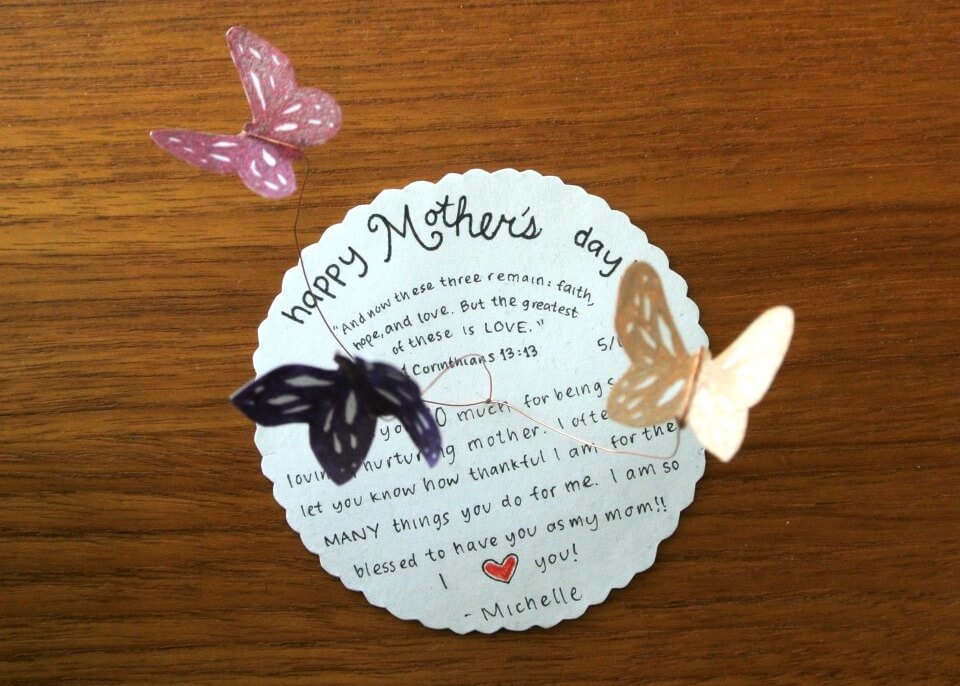 happy Mother's day
"And now these three remain: faith,
hope, and love. But the greatest
of these is LOVE."
1 Corinthians 13:13
5/
much for being
nurturing mother. I
let you know how thankful I am for the
MANY things you do for me. I am so
blessed to have you as my mom!!
I ❤ you!
- Michelle